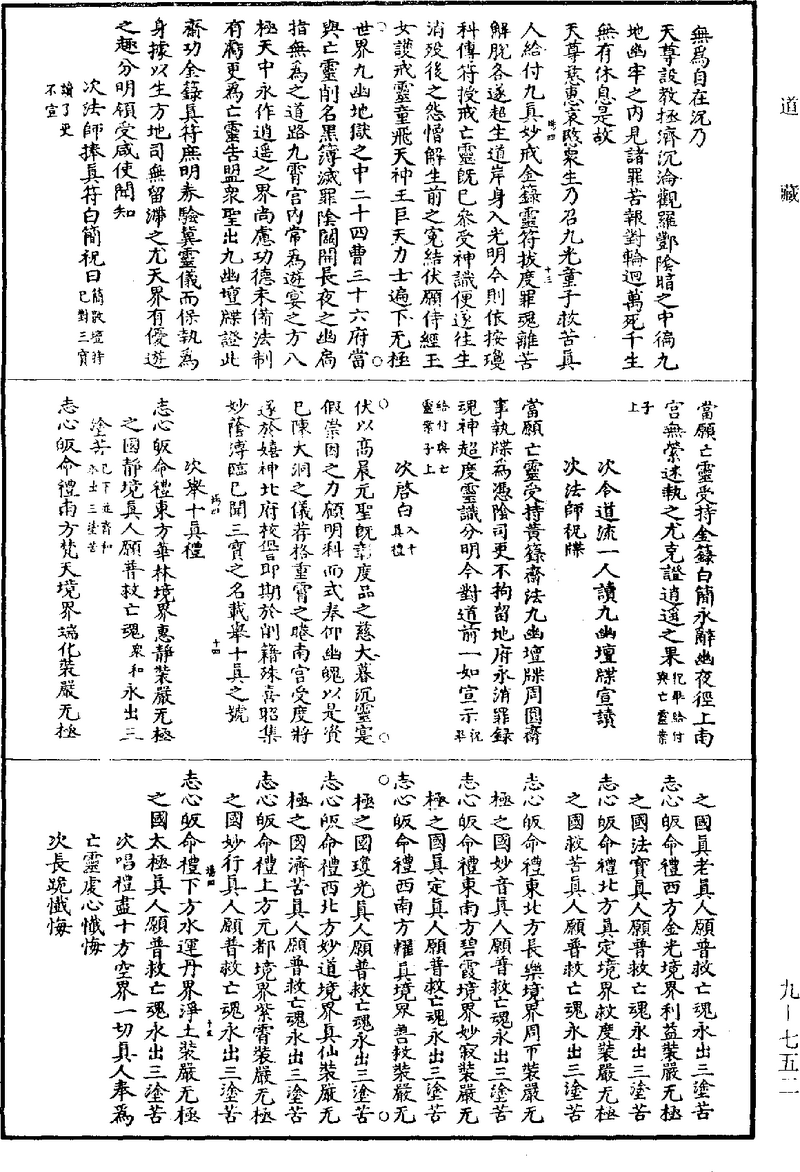 道藏
無為自在沉乃
天尊設教拯濟沉淪觀羅酆陰暗之中徧九
地幽牢之內見諸罪苦報對輪迴萬死千生
無有休息是故
天尊慈惠哀愍眾生乃召九光童子救苦真
人給付九真妙戒金籙靈符拔度罪魂離苦
解脫各遂超生道岸身入光明今則依按瓊
科傳符授戒亡靈既已參受神識便遂往生
消殁後之怨憎解生前之寃結伏願侍經玉
女護戒靈童飛天神王巨天力士遍下无極
世界九幽地獄之中二十四曹三十六府當
與亡靈削名黑簿滅罪陰關開長夜之幽扃
指無為之道路九霄宮內常為遊宴之方八
極天中永作逍遙之界尚慮功德未備法制
有虧更為亡靈告盟眾聖出九幽壇牒證此
齋功金籙真符庶明券驗冀靈儀而保執為
身據以生方地司無留滯之尤天界有優遊
之趣分明領受咸使聞知
次法師捧真符白簡祝曰簡散壇持已對三寶
讀了更不宣
當願亡靈受持金籙白簡永辭幽夜徑上南
宮無縈迷執之尤克證逍遥之果祝畢給付與亡靈案
子上
次令道流一人讀九幽壇牒宣讀
次法師祝牒
當願亡靈受持黃籙齋法九幽壇牒周圓齋
事執牒為憑陰司更不拘留地府永消罪錄
魂神超度靈識分明今對道前一如宣示祝畢
給付與亡靈案子上
次啓白入十真禮
伏以高晨元聖既彰度品之慈大暮沉靈寔
假崇因之力顧明科而式奉仰幽魄以是資
已陳大洞之儀荐格重霄之睠南宮受度將
遂於嬉神北府校咎即期於削籍殊喜昭集
妙蔭溥臨已聞三寶之名載舉十真之號
次舉十真禮
志心皈命禮東方華林境界惠靜裝嚴无極
之國靜境真人願普救亡魂眾和永出三
塗苦已下並齊和永出三塗苦
志心皈命禮南方梵天境界端化裝嚴无極
之國真老真人願普救亡魂永出三塗苦
志心皈命禮西方金光境界利益裝嚴无極
之國法寶真人願普救亡魂永出三塗苦
志心皈命禮北方真定境界救度裝嚴无極
之國救苦真人願普救亡魂永出三塗苦
志心皈命禮東北方長樂境界周币裝嚴无
極之國妙音真人願普救亡魂永出三塗苦
志心皈命禮東南方碧霞境界妙寂裝嚴无
極之國真定真人願普救亡魂永出三塗苦
志心皈命禮西南方耀真境界善救裝嚴无
極之國瓊光真人願普救亡魂永出三塗苦
志心皈命禮西北方妙道境界真仙裝嚴无
極之國濟苦真人願普救亡魂永出三塗苦
志心皈命禮上方元都境界紫霄裝嚴无極
之國妙行真人願普救亡魂永出三塗苦
志心皈命禮下方水運丹界淨土裝嚴无極
之國太極真人願普救亡魂永出三塗苦
次唱禮盡十方空界一切真人奉為
亡靈虔心懺悔
次長跪懺悔
九—七五二